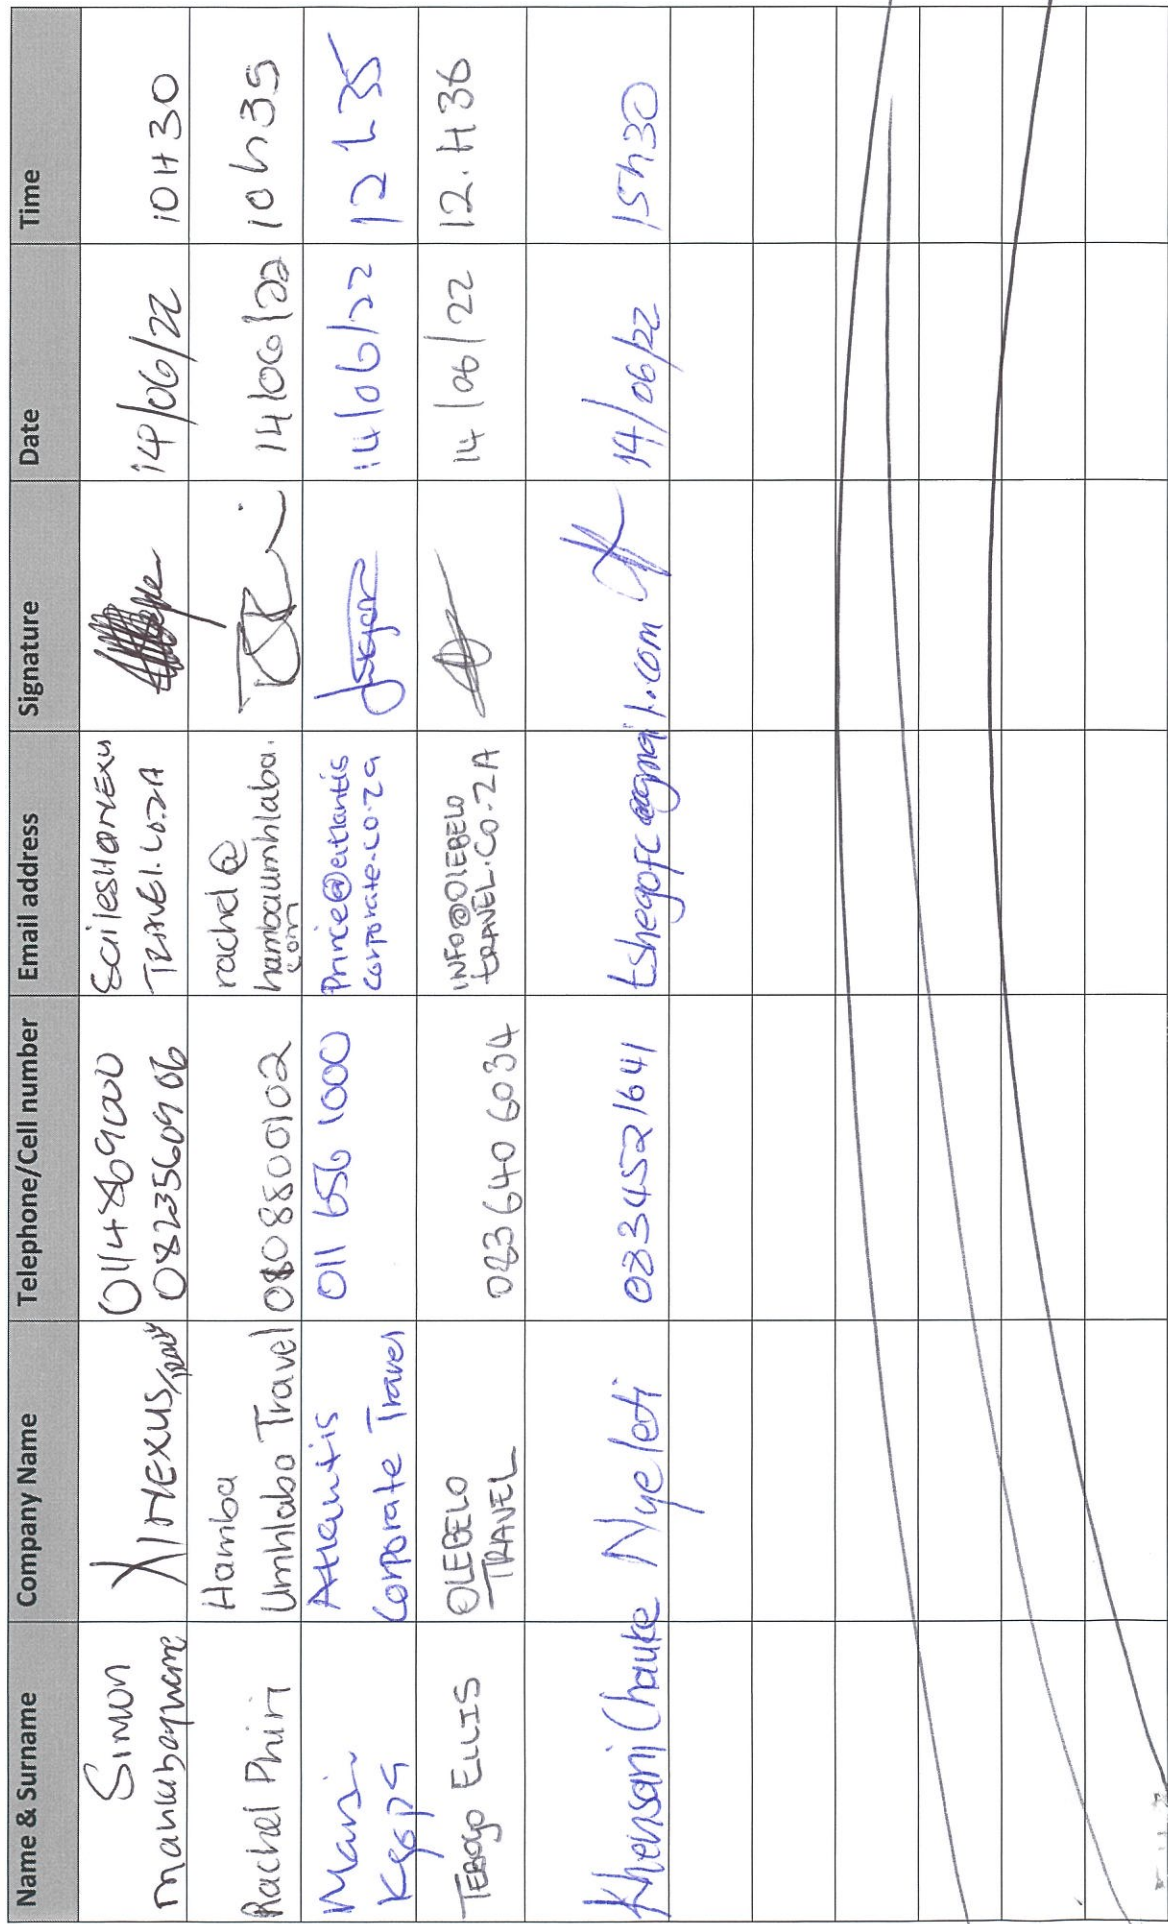 Name & Surname Company Name Telephone/Cell number Email address Signature Date Time
Simon 0114869000
XINEXUS 0823560906 TRAVEL.CO.ZA 14/06/22 10H30
Rachel Phiri Hamba Umhlaba Travel 0808800102 rachel@hambaumhlaba.com 14/06/22 10h35
Atlantis Corporate Travel 011 656 1000 Prince@atlantiscorporate.co.za 14/06/22 12h35
TEBOGO ELLIS OLEBELO TRAVEL 083 640 6034 INFO@OLEBELOTRAVEL.CO.ZA 14/06/22 12.H36
Khensani Chauke Nyeleti 0834521641 tshegofc@gmail.com 14/06/22 15h30